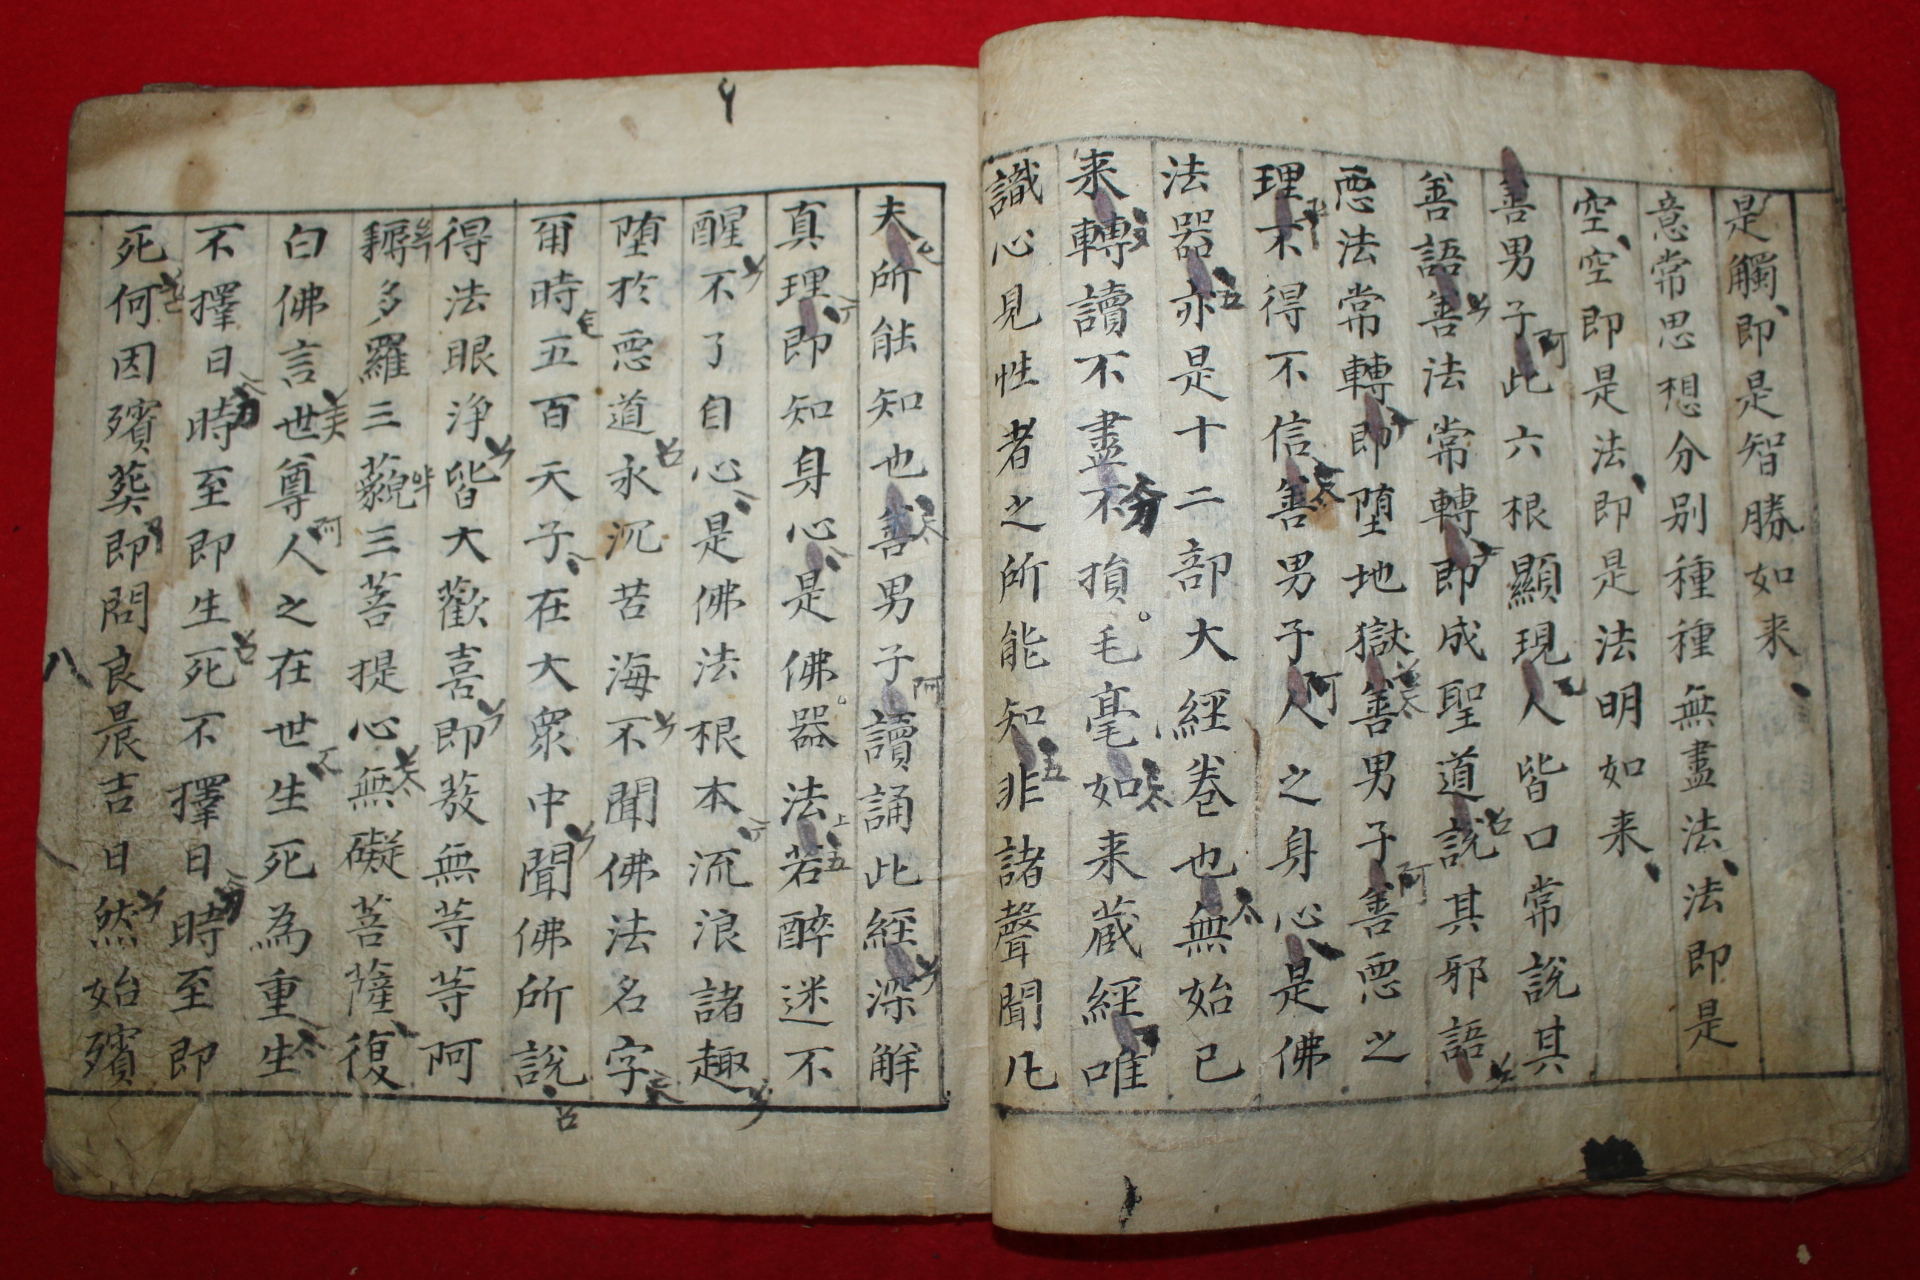 是觸即是智勝如来
意常思想分別種種無盡法法即是
空空即是法即是法明如来
善男子此六根顯現人皆口常說其
善語善法常轉即成聖道說其邪語
惡法常轉即堕地獄善男子善惡之
理不得不信善男子人之身心是佛
法器亦是十二部大經卷也無始已
来轉讀不盡不損毛毫如来蔵經唯
識心見性者之所能知非諸聲聞凡
夫所能知也善男子讀誦此經深解
真理即知身心是佛器法若醉迷不
醒不了自心是佛法根本流浪諸趣
堕於惡道永沉苦海不聞佛法名字
爾時五百天子在大衆中聞佛所說
得法眼浄皆大歡喜即發無等等阿
耨多羅三藐三菩提心無礙菩薩復
白佛言世尊人之在世生死為重生
不擇日時至即生死不擇日時至即
死何因殯葬即問良晨吉日然始殯
八